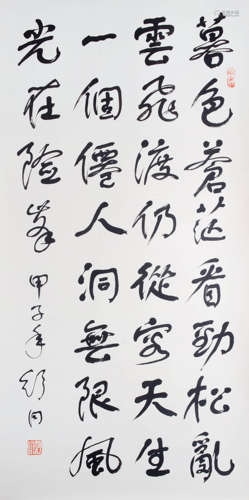 暮色蒼茫看勁松亂
雲飛渡仍從容天生
一個僊人洞無限風
光在险峯
甲子年舒同